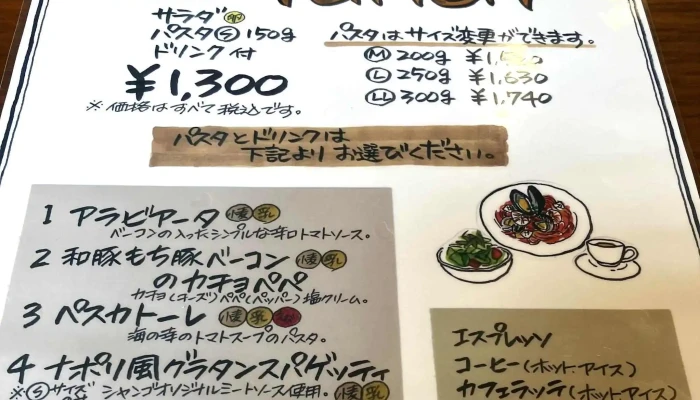 サラダ 卵
パスタ Ⓢ 150g
ドリンク付
¥1,300
※価格はすべて税込です。
パスタはサイズ変更ができます。
Ⓜ 200g
Ⓛ 250g ¥1,630
LL 300g ¥1,740
パスタとドリンクは
下記よりお選びください。
1 アラビアータ 小麦 乳
ベーコンの入ったシンプルな辛口トマトソース。
2 和豚もち豚ベーコン 小麦 乳
のカチョペペ
カチョ(チーズ)ペペ(ペッパー)塩クリーム。
3 ペスカトーレ 小麦 乳
海の幸のトマトスープのパスタ。
4 ナポリ風グラタンスパゲッティ
※Ⓢサイズ シャンゴオリジナルミートソース使用。 小麦 乳
エスプレッソ
コーヒー(ホット・アイス)
カフェラッテ(ホット・アイス)